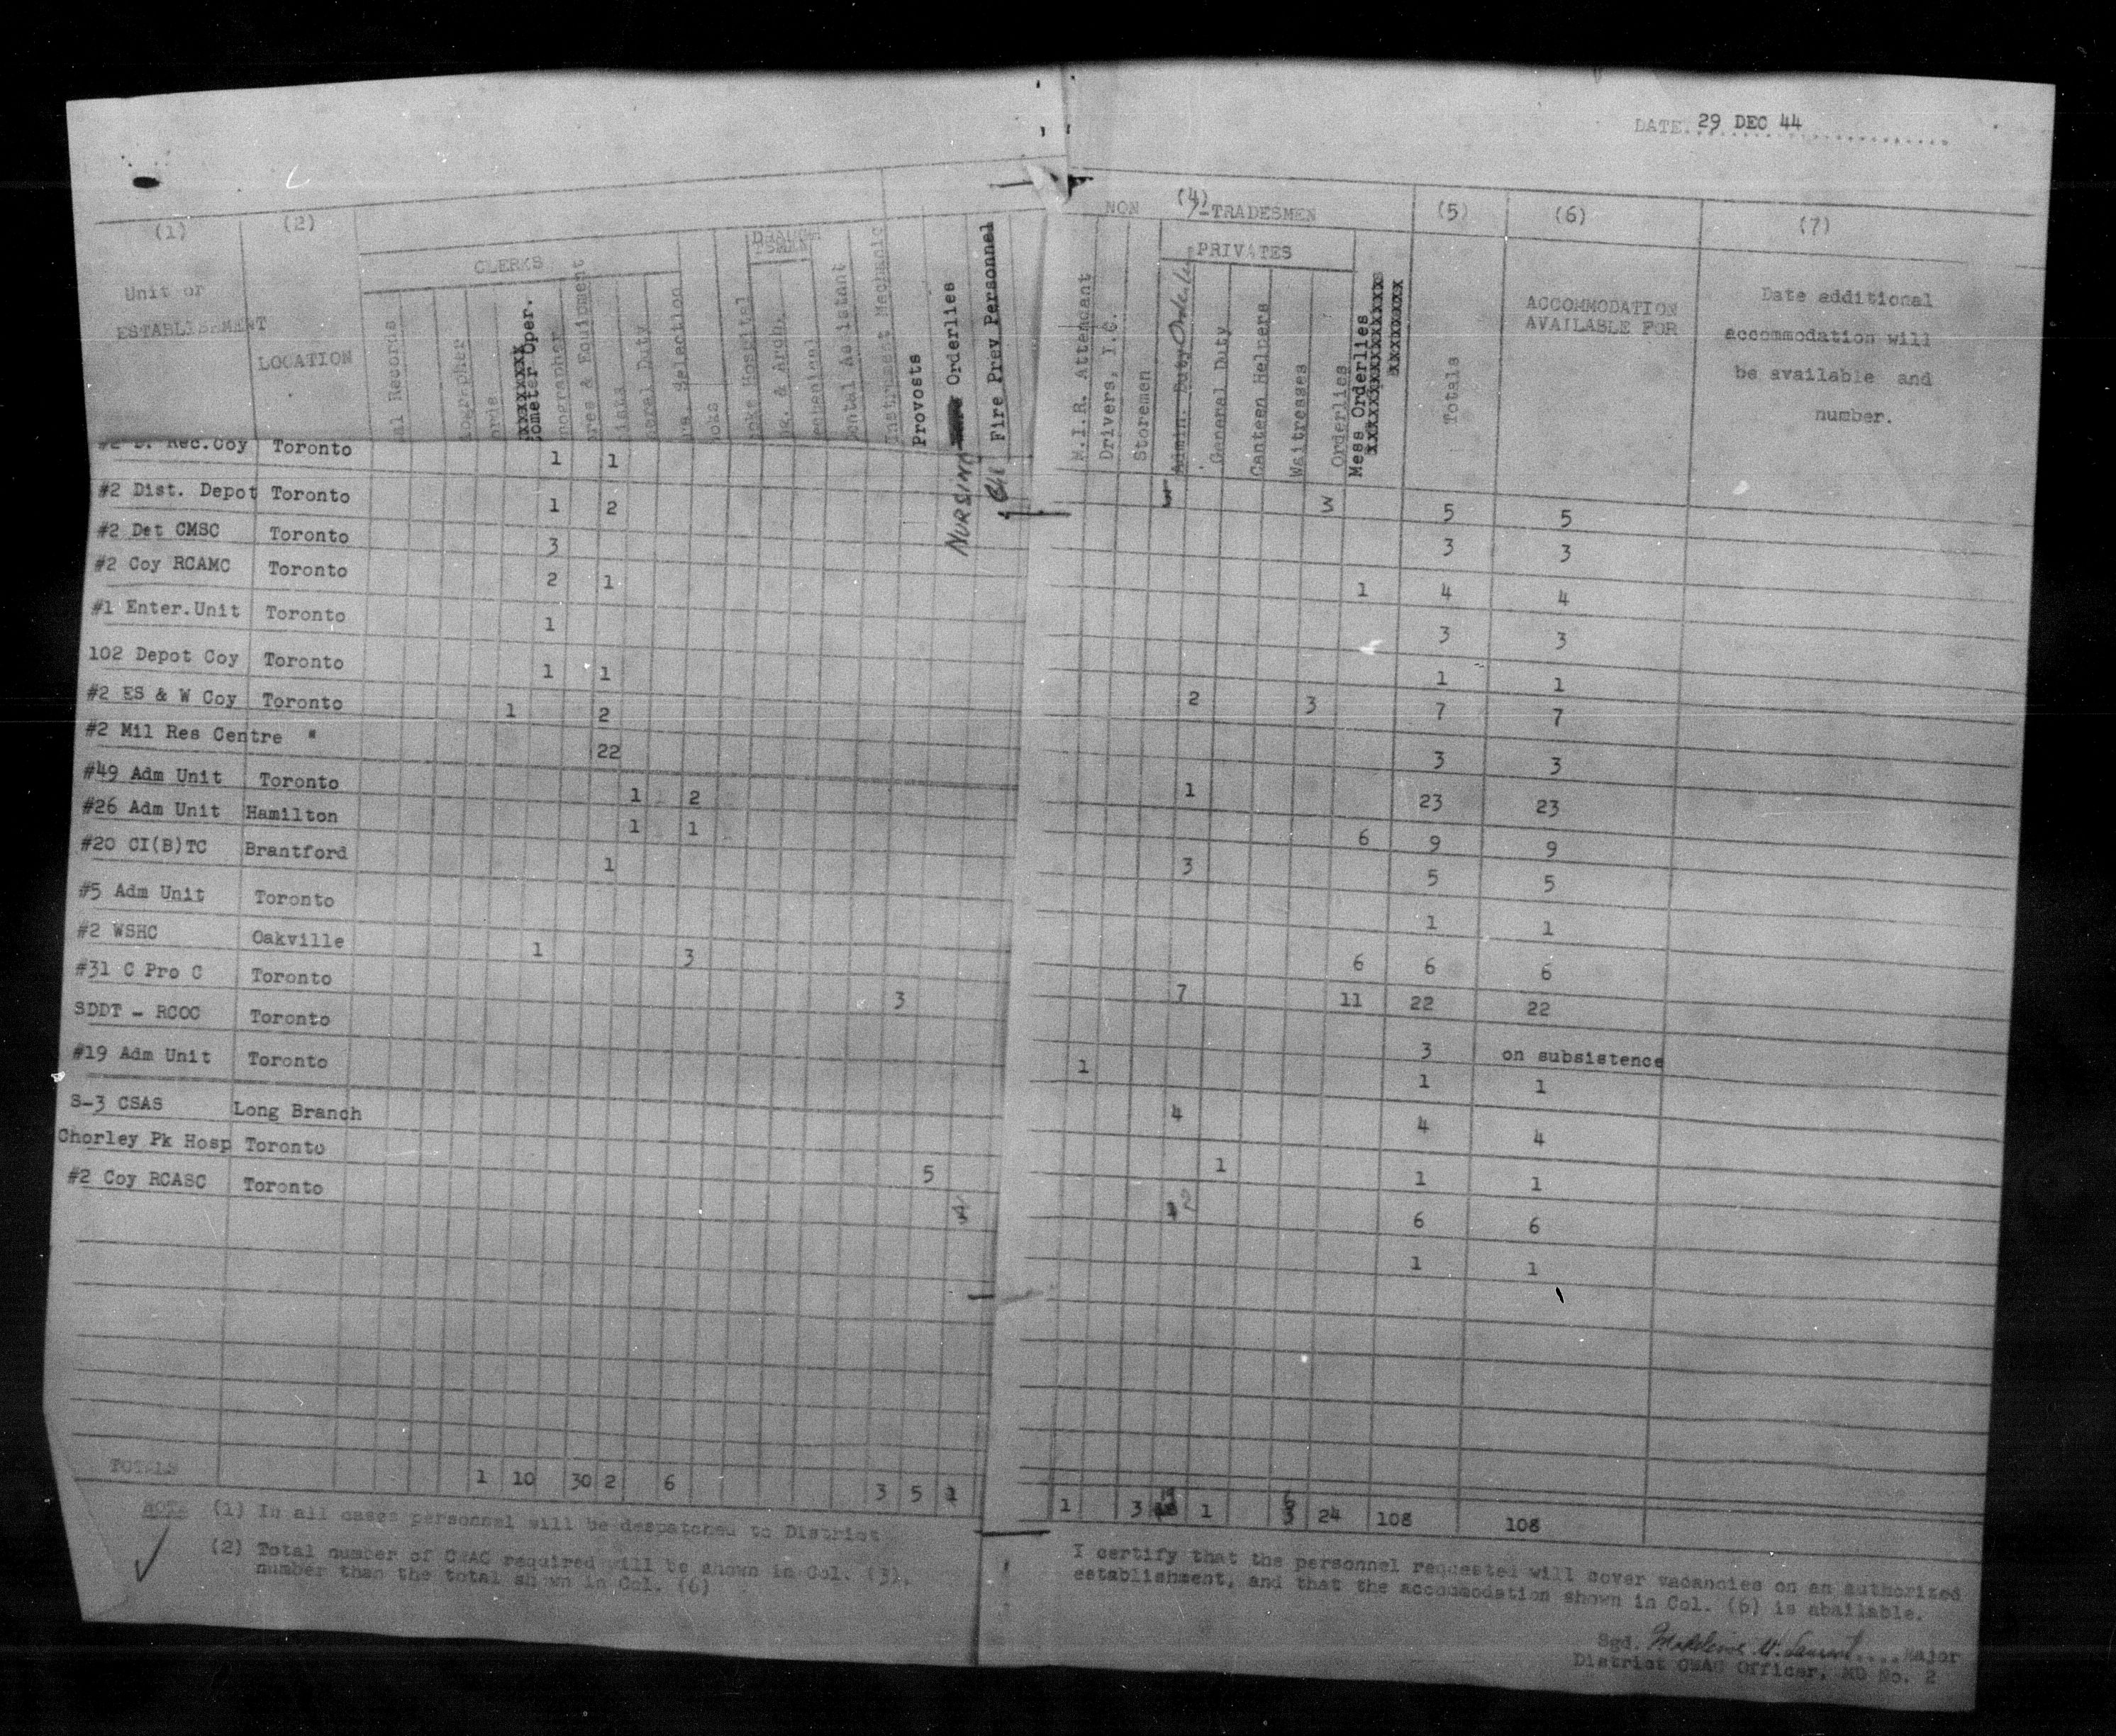 DATE 29 DEC 44
(1) (2) NON (4) -TRADESMEN (5) (6) (7)
CLERKS PRIVATES
Unit or
ESTABLISHMENT
LOCATION
al Records
ographer
xxxxxxxxx
ometer Oper.
nographer
ores & Equipment
ists
eral Duty
Selection
oks
oke Hospital
& Arch.
echanical
ental Assistant
Instrument Mechanic
Provosts
NURSING Orderlies
Fire Prev Personnel
M.I.R. Attendant
Drivers, I.C.
Storemen
Admin. Duty Orderlies
General Duty
Canteen Helpers
Waitresses
Orderlies
Mess Orderlies
Totals
ACCOMMODATION
AVAILABLE FOR
Date additional
accommodation will
be available and
number.
#2 D. Rec.Coy Toronto 1 1 3 5 5
#2 Dist. Depot Toronto 1 2 3 3
#2 Det CMSC Toronto 3 1 4 4
#2 Coy RCAMC Toronto 2 1 3 3
#1 Enter.Unit Toronto 1 1 1
102 Depot Coy Toronto 1 1 2 3 7 7
#2 ES & W Coy Toronto 1 2 3 3
#2 Mil Res Centre " 22 1 23 23
#49 Adm Unit Toronto 1 2 6 9 9
#26 Adm Unit Hamilton 1 1 3 5 5
#20 CI(B)TC Brantford 1 1 1
#5 Adm Unit Toronto 6 6 6
#2 WSHC Oakville 1 3 7 11 22 22
#31 C Pro C Toronto 3 3 on subsistence
SDDT - RCOC Toronto 1 1 1
#19 Adm Unit Toronto 4 4 4
S-3 CSAS Long Branch 1 1 1
Chorley Pk Hosp Toronto 5 1 2 6 6
#2 Coy RCASC Toronto 1 1 1
TOTALS 1 10 30 2 6 3 5 1 1 3 19 1 3 24 108 108
NOTE (1) In all cases personnel will be despatched to District
(2) Total number of CWAC required will be shown in Col. (3),
number than the total shown in Col. (6)
I certify that the personnel requested will cover vacancies on an authorized
establishment, and that the accommodation shown in Col. (6) is abailable.
Sgd. .... Major
District CWAC Officer, MD No. 2